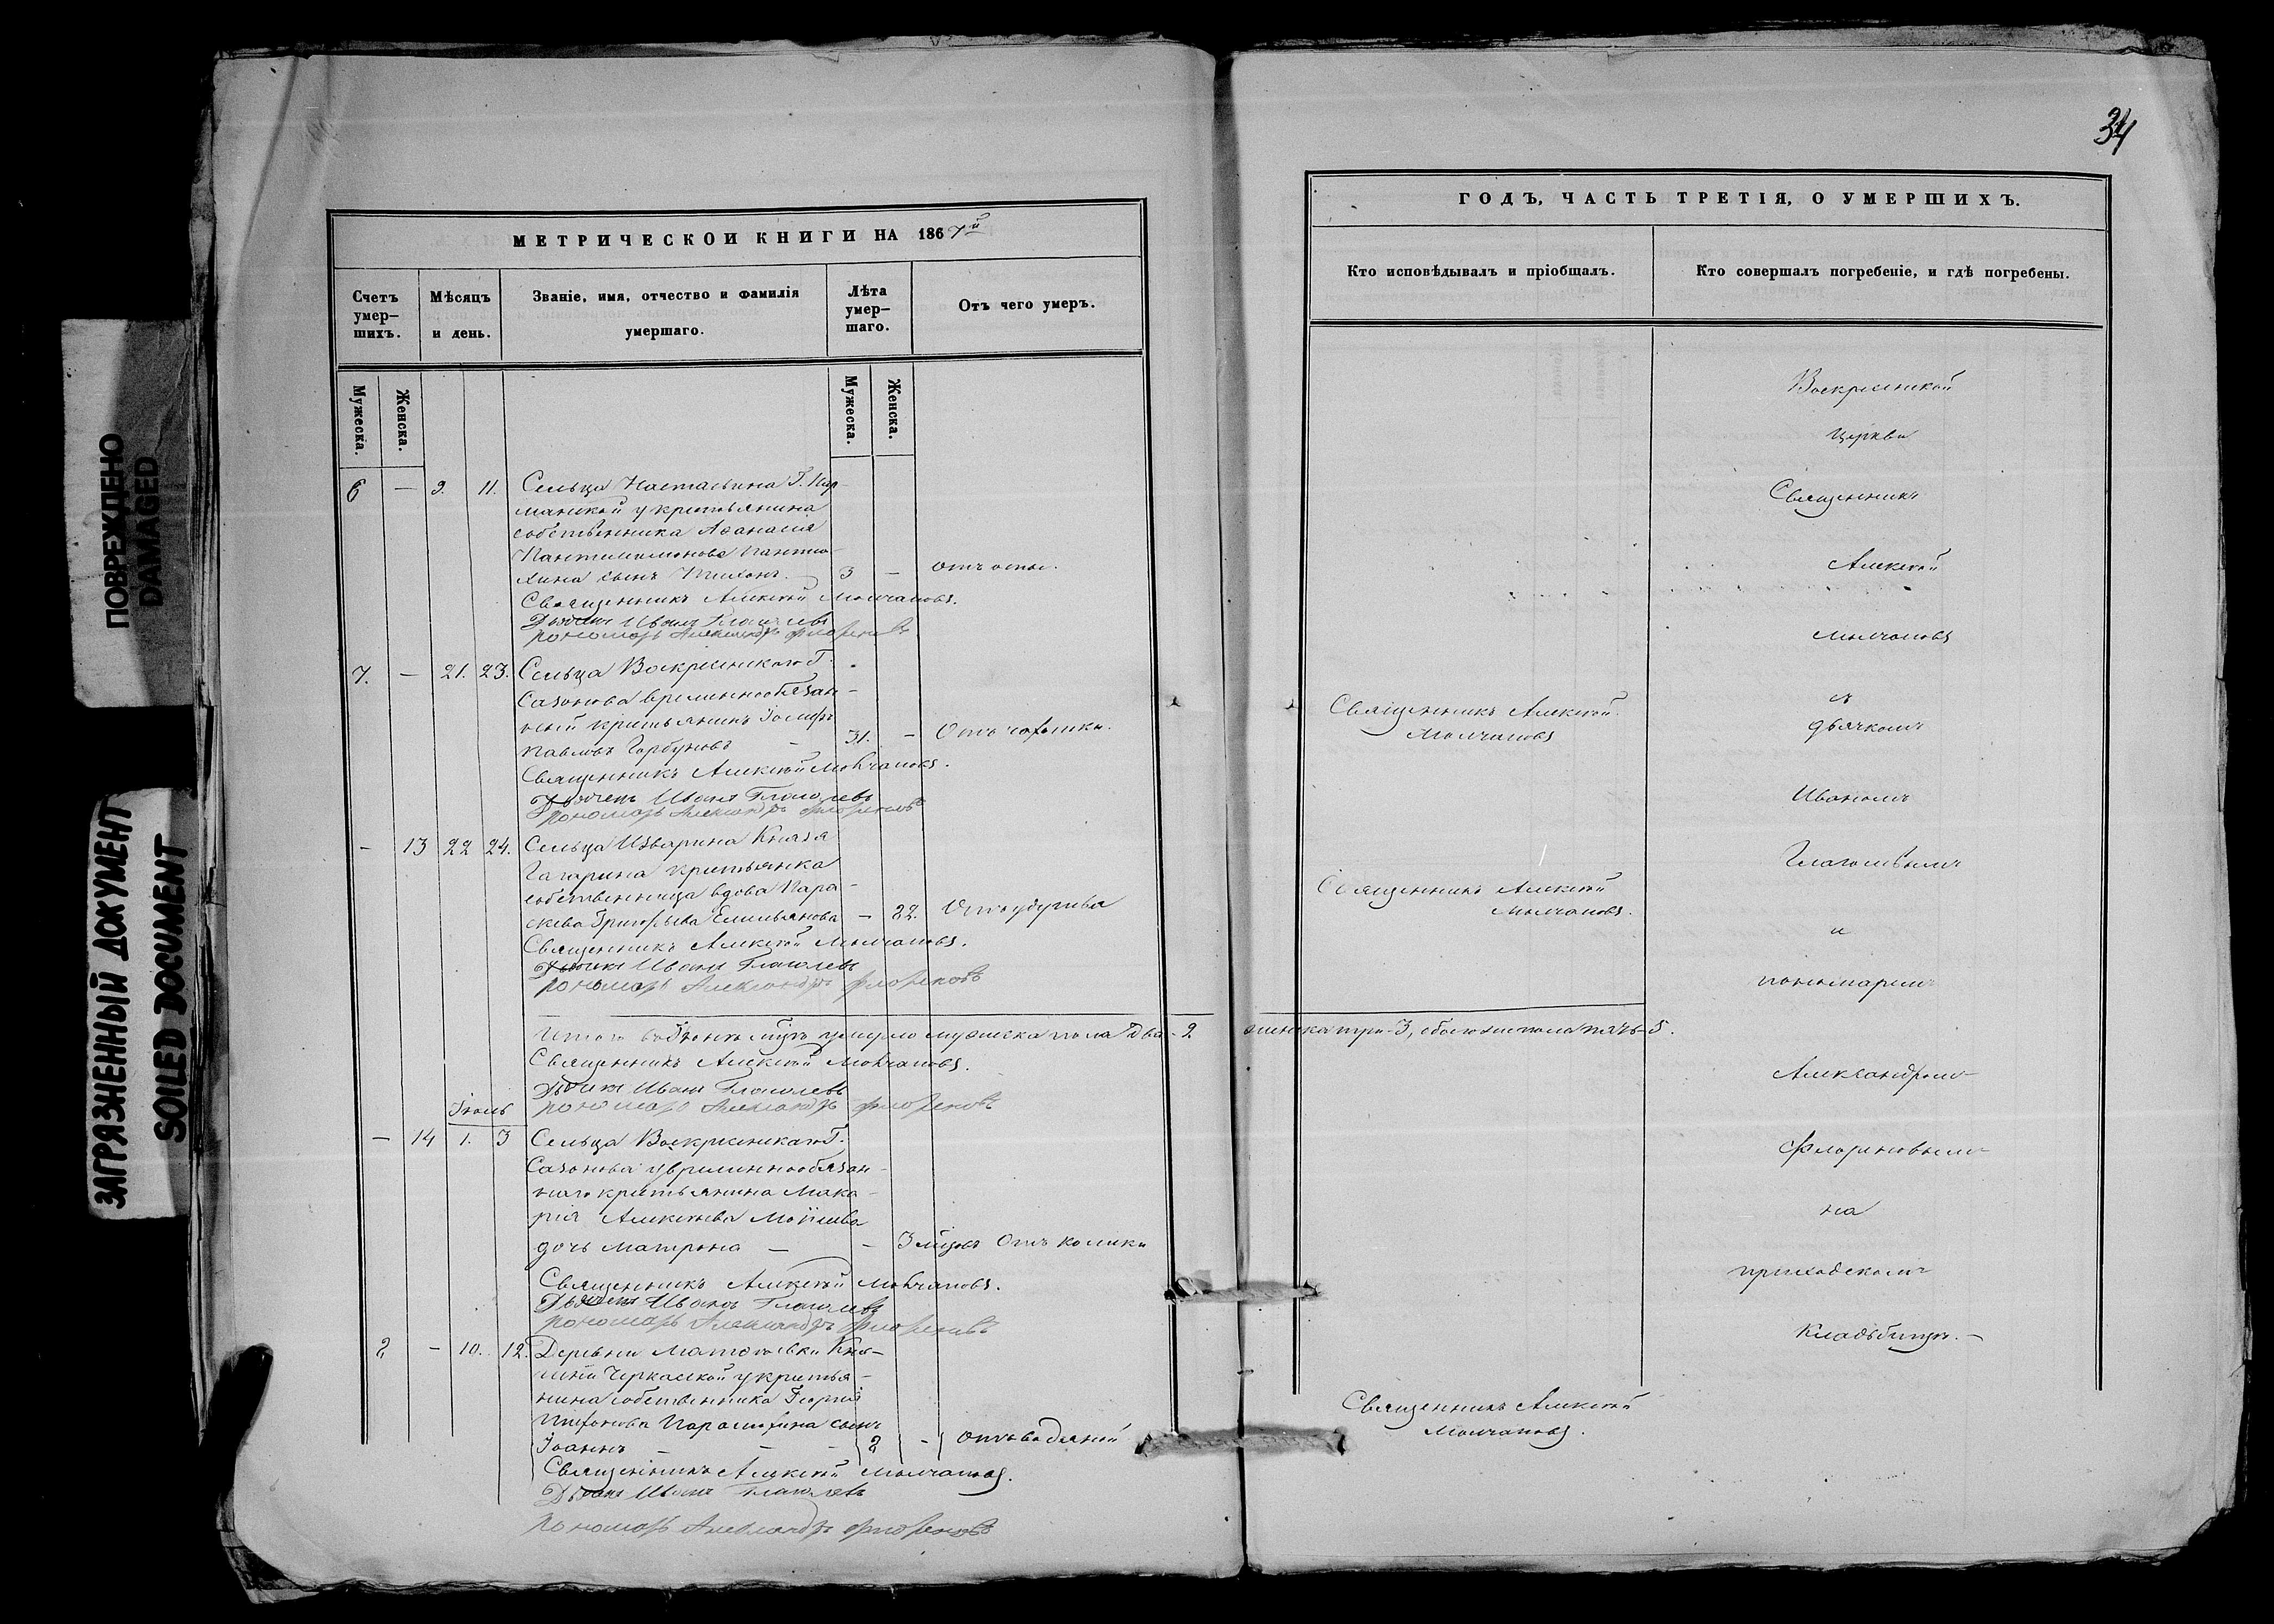 ПОВРЕЖДЕНО
DAMAGED
ЗАГРЯЗНЕННЫЙ ДОКУМЕНТ
SOILED DOCUMENT
МЕТРИЧЕСКОИ КНИГИ НА 1867й
Счетъ умер-шихъ.
Мѣсяцъ и день.
Званіе, имя, отчество и фамилія умершаго.
Лѣта умер-шаго.
Отъ чего умеръ.
Мужеска.
Женска.
Мужеска.
Женска.
6 — 9. 11. Сельца
у крестьянина
собственника Аѳанасія
Пантелимонова Пантю-
хина сынъ Тихонъ. 3 — отъ оспы.
Священникъ Алексѣй Молчановъ.
Дьячекъ Иванъ Глаголевъ
Пономарь Александръ Флореновъ
7. — 21. 23. Сельца Воскресенскаго Г.
Сазонова временнообязан-
ный крестьянинъ Іосифъ
Павловъ Горбуновъ — 31. — Отъ чахотки.
Священникъ Алексѣй Молчановъ.
Дьячекъ Иванъ Глаголевъ
Пономарь Александръ Флореновъ
— 13 22 24. Сельца Изварина Князя
Гагарина крестьянка
собственница вдова Пара-
скева Григорьева Емельянова — 82.
Священникъ Алексѣй Молчановъ.
Дьячекъ Иванъ Глаголевъ
Пономарь Александръ Флореновъ
Итого въ Іюнѣ мцѣ умерло мужеска пола два - 2 женска три - 3, обоего пола пять - 5.
Священникъ Алексѣй Молчановъ.
Дьячекъ Иванъ Глаголевъ
Пономарь Александръ Флореновъ
Іюль
— 14 1. 3 Сельца Воскресенскаго Г.
Сазонова у временнообязан-
наго крестьянина Мака-
рія Алексѣева Моисѣева
дочь Матрона — — 3 мцовъ Отъ колики
Священникъ Алексѣй Молчановъ.
Дьячекъ Иванъ Глаголевъ
Пономарь Александръ Флореновъ
8 — 10. 12. Деревни Кня-
гини Черкаской у крестья-
нина собственника Георгія
Тихонова сынъ
Іоаннъ — — — 8 — Отъ водяной
Священникъ Алексѣй Молчановъ.
Дьячекъ Иванъ Глаголевъ
Пономарь Александръ Флореновъ
34
ГОДЪ, ЧАСТЬ ТРЕТІЯ, О УМЕРШИХЪ.
Кто исповѣдывалъ и пріобщалъ.
Кто совершалъ погребеніе, и гдѣ погребены.
Священникъ Алексѣй
Молчановъ
Священникъ Алексѣй
Молчановъ.
Священникъ Алексѣй
Молчановъ.
Воскресенской
церкви
Священникъ
Алексѣй
Молчановъ
съ
дьячкомъ
Иваномъ
Глаголевымъ
и
пономаремъ
Александромъ
Флореновымъ
на
приходскомъ
кладбищѣ. —